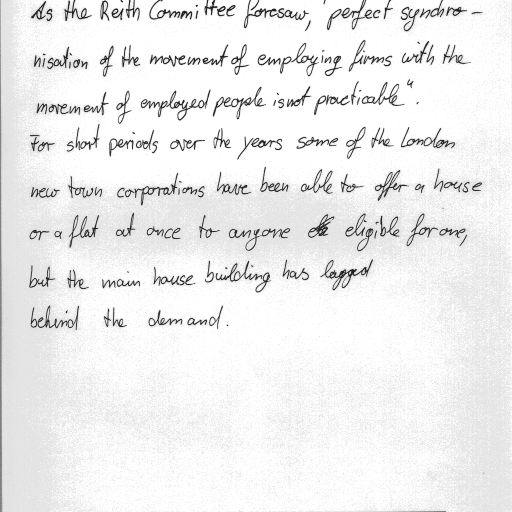 As the Reith Committee foresaw, "perfect synchro-
nisation of the movement of employing firms with the
movement of employed people is not practicable".
For short periods over the years some of the London
new town corporations have been able to offer a house
or a flat at once to anyone eligible for one,
but the main house building has lagged
behind the demand.